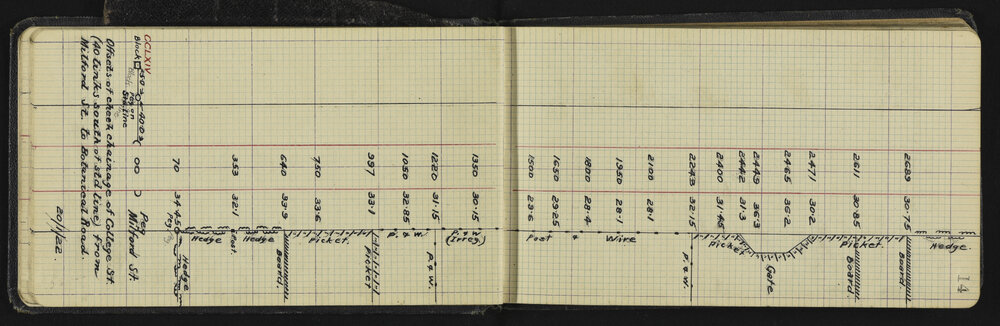 14
Hedge.
2689 30.75 Board.
Picket.
2611 30.85 Board.
Picket
2471 30.2
2465 36.2
Gate
2449 36.3
2442 31.3
Picket
2400 31.45
2243 32.15 P & W.
2100 28.1
1950 28.1 Wire
1800 28.4
1650 29.25 &
1500 29.6 Post
1350 30.15 P. & W
(Irreg.)
1220 31.15 P & W.
1050 32.85 P. & W.
997 33.1 Picket
750 33.6 Picket.
640 33.9 Board.
Hedge
353 32.1 Post.
Hedge
70 34.45 Peg Hedge
00 Peg
Milford St
CCLXIV
Block 50 40.0
Peg on
Std Line
Offsets of check chainage of College St.
(40 links south of std line) from
Milford St. to Botanical Road.
20/1/22.